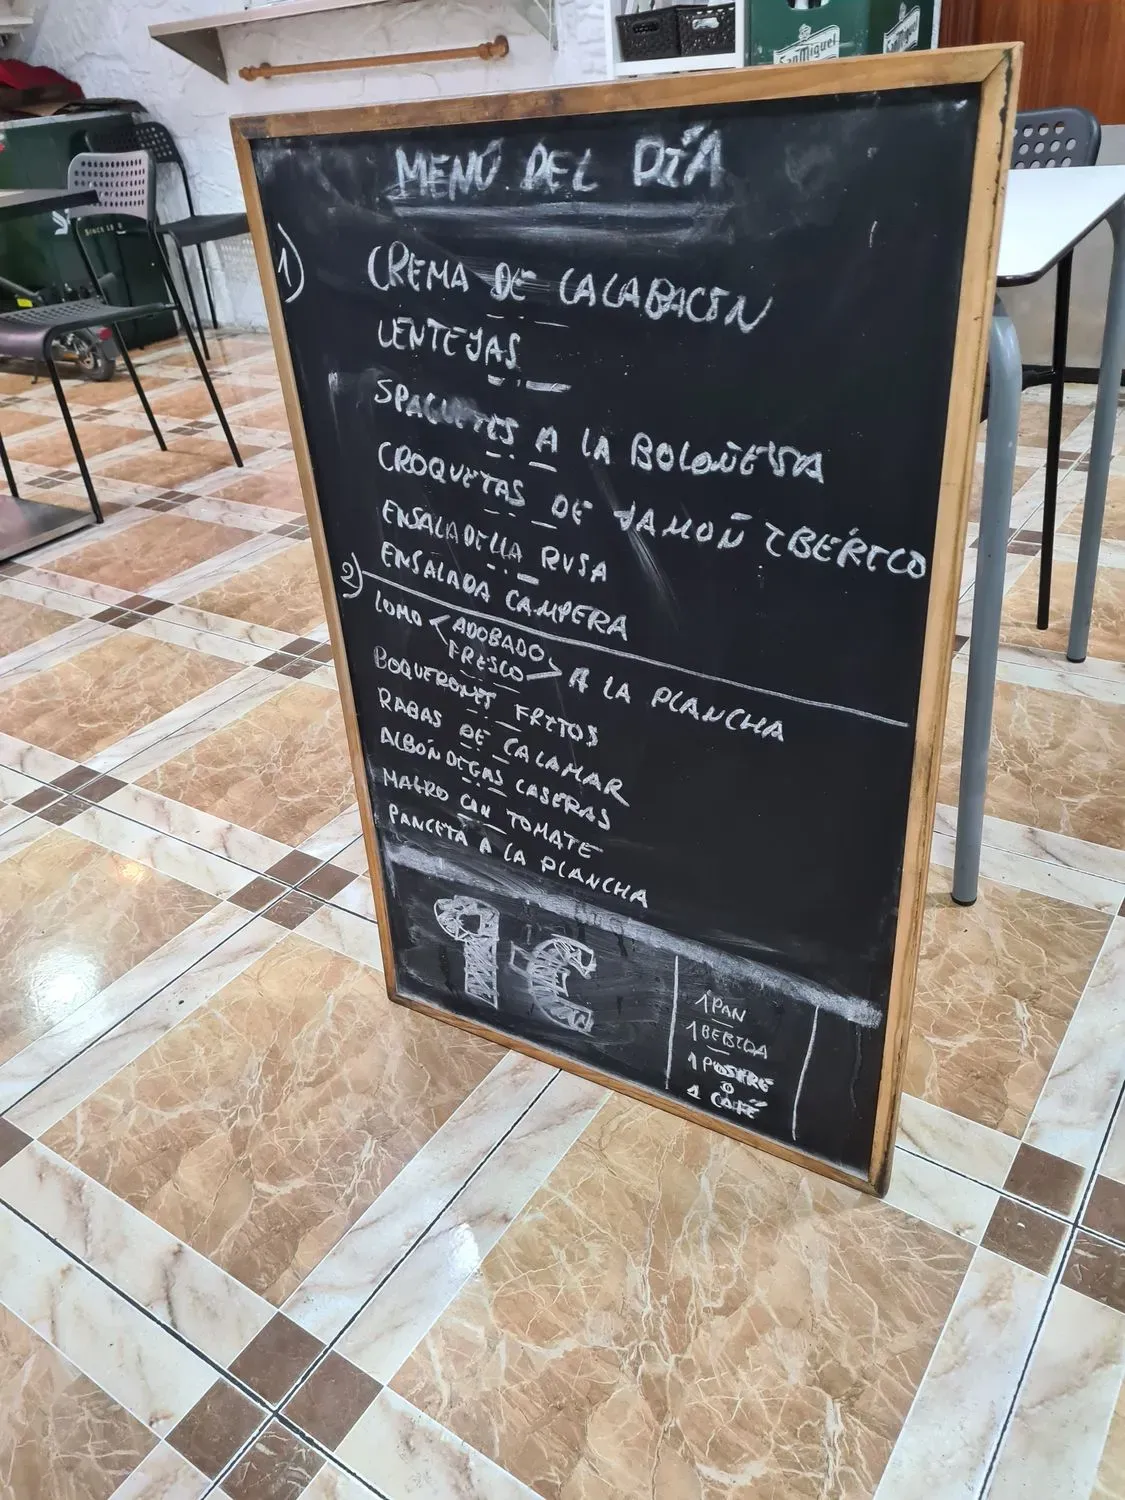 San Miguel
San Miguel
SINCE 18
MENÚ DEL DÍA
1)
CREMA DE CALABACÍN
LENTEJAS
SPAGUETIS A LA BOLOÑESA
CROQUETAS DE JAMOÑ IBÉRICO
ENSALADILLA RUSA
ENSALADA CAMPERA
2)
LOMO < ADOBADO
FRESCO > A LA PLANCHA
BOQUERONES FRITOS
RABAS DE CALAMAR
ALBÓNDIGAS CASERAS
MAGRO CON TOMATE
PANCETA A LA PLANCHA
9€
1 PAN
1 BEBIDA
1 POSTRE
O
1 CAFÉ